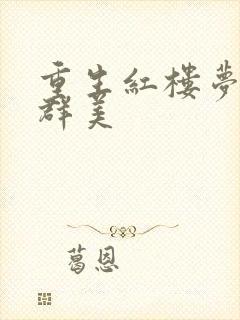 重生紅樓夢
群美
葛恩